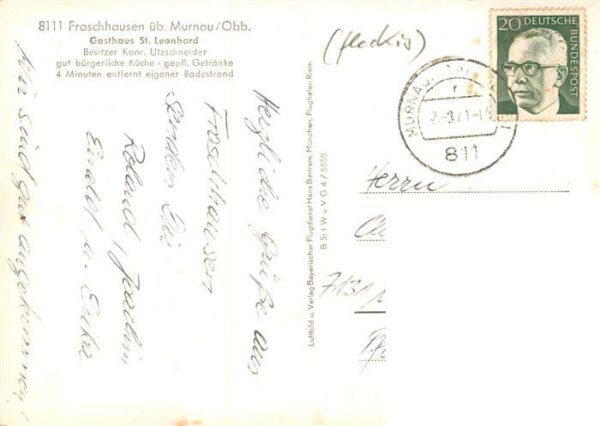 8111 Froschhausen üb. Murnau/Obb.
Gasthaus St. Leonhard
Besitzer Konr. Utzschneider
gut bürgerliche Küche - gepfl. Getränke
4 Minuten entfernt eigener Badestrand
(fleckig)
20 DEUTSCHE
BUNDESPOST
MURNAU
811
Herzliche Grüße aus
Froschhausen
senden Dir
Roland, Joachim
u.
Wir sind gut angekommen!
Luftbild u. Verlag Bayerischer Flugdienst Hans Bertram, München, Flughafen Riem
B. St f W u V G 4 / 5555
Herrn
7131